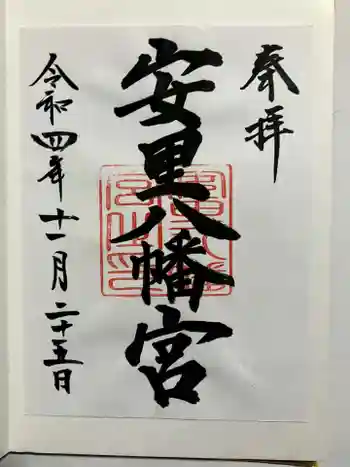 奉拝
安里八幡宮
令和四年十一月二十五日